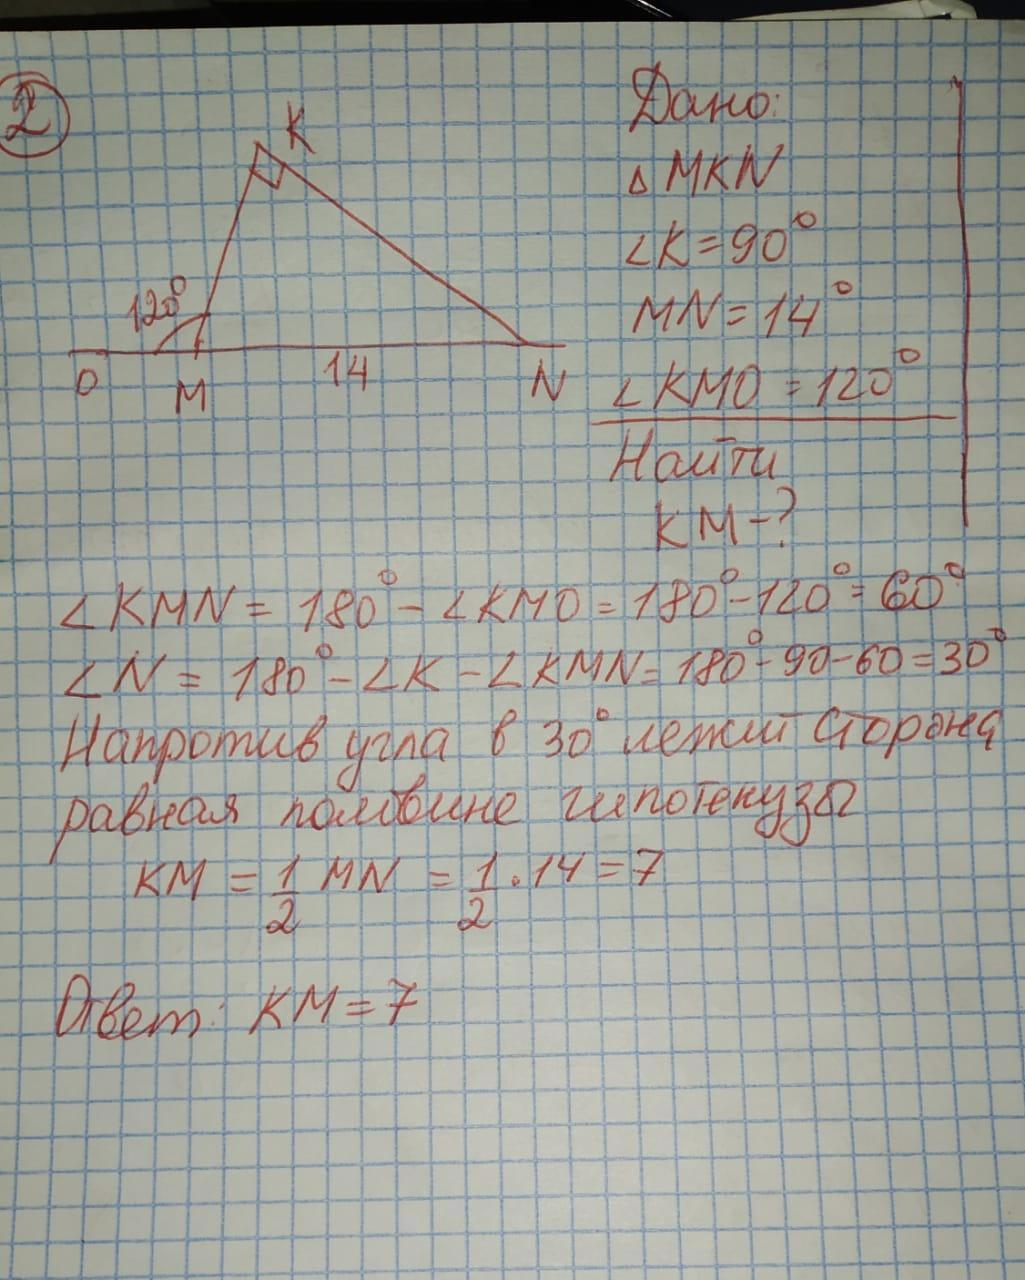 2
K
120°
O
M
14
N
Дано:
△ MKN
∠K = 90°
MN = 14°
∠KMO = 120°
Найти
KM - ?
∠KMN = 180° - ∠KMO = 180° - 120° = 60°
∠N = 180° - ∠K - ∠KMN = 180° - 90 - 60 = 30°
Напротив угла в 30° лежит сторона
равная половине гипотенузы
KM = 1/2 MN = 1/2 · 14 = 7
Ответ: KM = 7